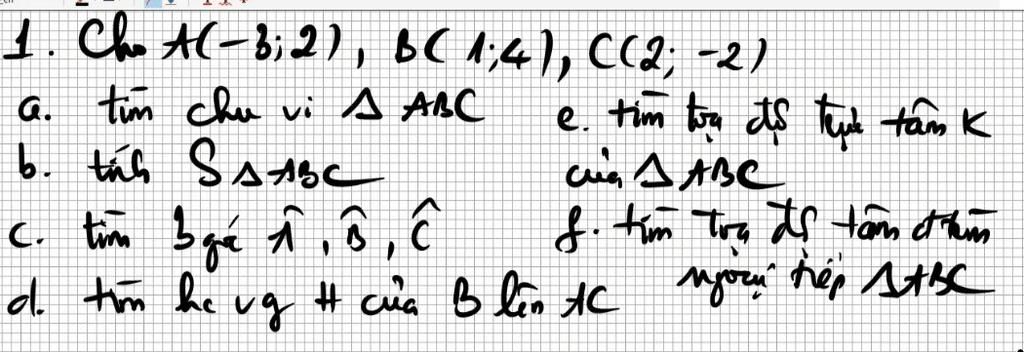 1. Cho A(-3;2), B(1;4), C(2;-2)
a. tìm chu vi Δ ABC
b. tính S Δ ABC
c. tìm 3 góc Â, B̂, Ĉ
d. tìm hc vg H của B lên AC
e. tìm tọa độ trực tâm K
của Δ ABC
f. tìm tọa độ tâm đ tròn
ngoại tiếp ΔABC